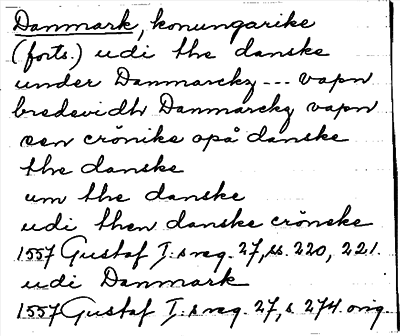 Danmark, konungarike
(forts.) udi the danske
under Danmarckz --- vapn
bredevidh Danmarckz vapn
een crönike opå danske
the danske
um the danske
udi then danske crönske
1557 Gustaf I:s reg. 27, ss. 220, 221.
udi Danmark
1557 Gustaf I:s reg. 27, s. 274 orig.